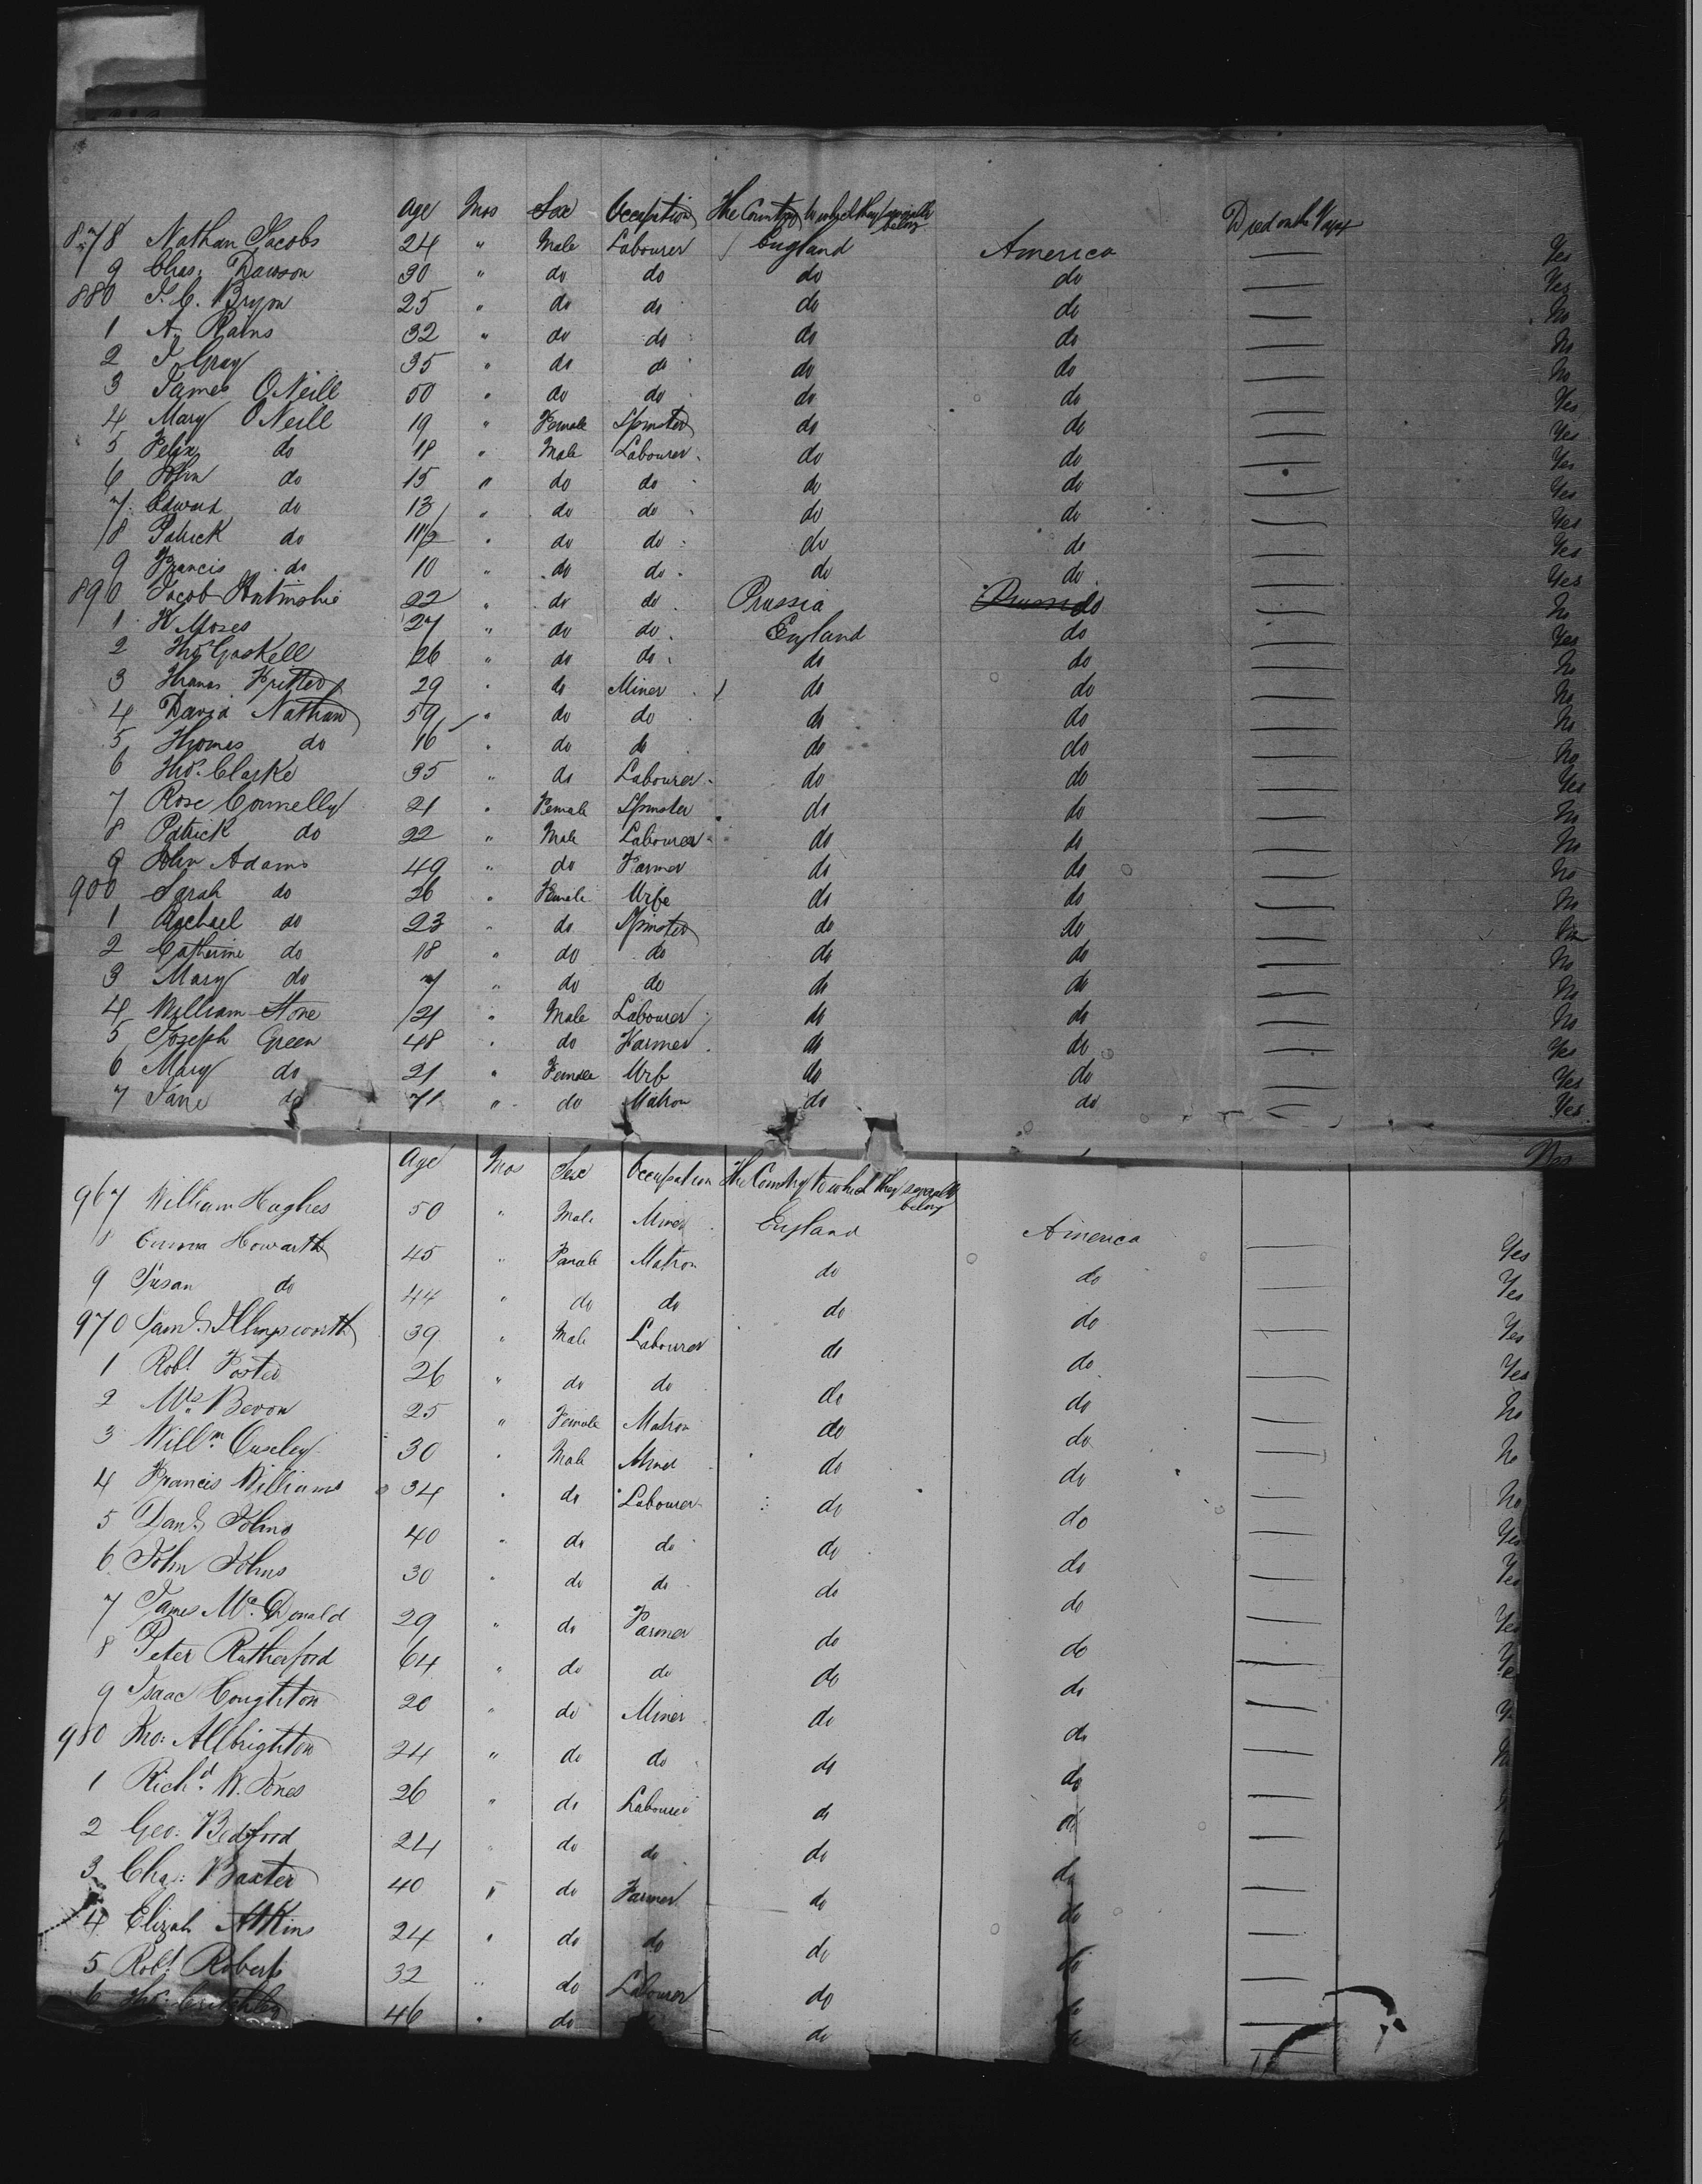 Age Mos Sex Occupation The Country to which they severally belong Died on the Voyage
878 Nathan Jacobs 24 " Male Labourer England America — Yes
9 Chas. Dawson 30 " do do do do — Yes
880 J. C. Bryon 25 " do do do do — No
1 A. Rains 32 " do do do do — No
2 J Gray 35 " do do do do — No
3 James O'Neill 50 " do do do do — Yes
4 Mary O'Neill 19 " Female Spinster do do — Yes
5 Felix do 18 " Male Labourer do do — Yes
6 John do 15 " do do do do — Yes
7 Edward do 13 " do do do do — Yes
8 Patrick do 11/2 " do do do do — Yes
9 Francis do 10 " do do do do — Yes
890 Jacob 22 " do do Prussia do — No
1 H Moses 27 " do do England do — Yes
2 Thos Gaskell 26 " do do do do — No
3 29 " do Miner do do — No
4 David Nathan 59 " do do do do — No
5 Thomas do 16 " do do do do — No
6 Thos. Clarke 35 " do Labourer do do — Yes
7 Rose Connelly 21 " Female Spinster do do — No
8 Patrick do 22 " Male Labourer do do — No
9 John Adams 49 " do Farmer do do — No
900 Sarah do 26 " Female Wife do do — No
1 Rachael do 23 " do Spinster do do —
2 Catherine do 18 " do do do do — No
3 Mary do 7 " do do do do — No
4 William Stone 21 " Male Labourer do do — No
5 Joseph Green 48 " do Farmer do do — Yes
6 Mary do 21 " Female Wife do do — Yes
7 Jane do 71 " do Matron do do — Yes
Age Mos Sex Occupation The Country to which they severally belong
967 William Hughes 50 " Male Miner England America — Yes
8 Emma Howarth 45 " Female Matron do do — Yes
9 Susan do 44 " do do do do — Yes
970 Saml. Illingsworth 39 " Male Labourer do do — Yes
1 Robt Foster 26 " do do do do — No
2 Mrs Bevon 25 " Female Matron do do — No
3 Willm. Ouseley 30 " Male Miner do do — No
4 Francis Williams 34 " do Labourer do do — Yes
5 Danl. Johns 40 " do do do do — Yes
6 John Johns 30 " do do do do — Yes
7 James Mc Donald 29 " do Farmer do do — Yes
8 Peter Rutherford 64 " do do do do —
9 Isaac Houghton 20 " do Miner do do —
980 Allbrighton 24 " do do do do —
1 Richd. W. Jones 26 " do Labourer do do —
2 Geo. Bedford 24 " do do do do —
3 Chas. Baxter 40 " do Farmer do do —
4 Elizah Atkins 24 " do do do do —
5 Robt. Roberts 32 " do Labourer do do —
6 Thos. Critchley 46 " do do —